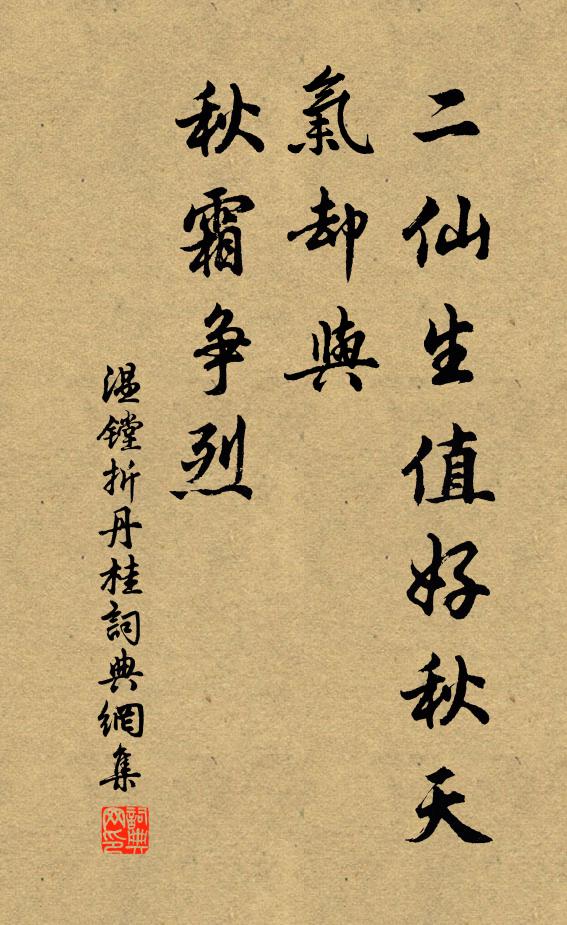 二仙生值好秋天
氣却與
秋霜争烈
温鏜折丹桂詞典網集
詞典网印